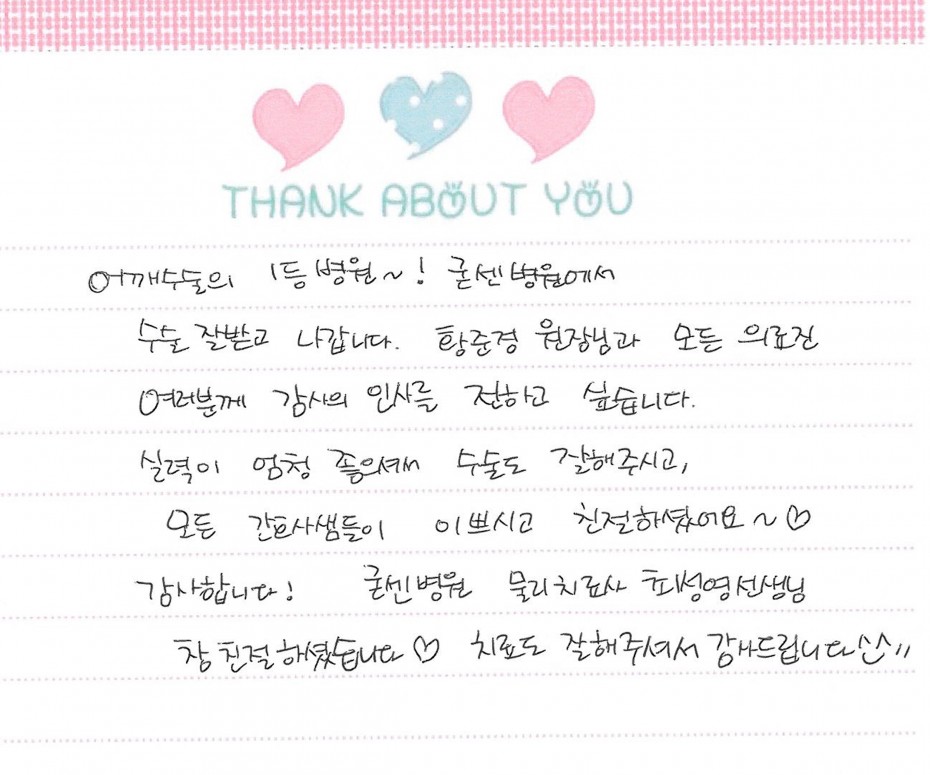 THANK ABOUT YOU
어깨수술의 1등병원~! 굳센병원에서
수술 잘받고 나갑니다. 황준경 원장님과 모든 의료진
여러분께 감사의 인사를 전하고 싶습니다.
실력이 엄청 좋으셔서 수술도 잘해주시고,
모든 간호사샘들이 이쁘시고 친절하셨어요~♡
감사합니다! 굳센병원 물리치료사 최성영선생님
참 친절하셨습니다♡ 치료도 잘해주셔서 감사드립니다^^,,